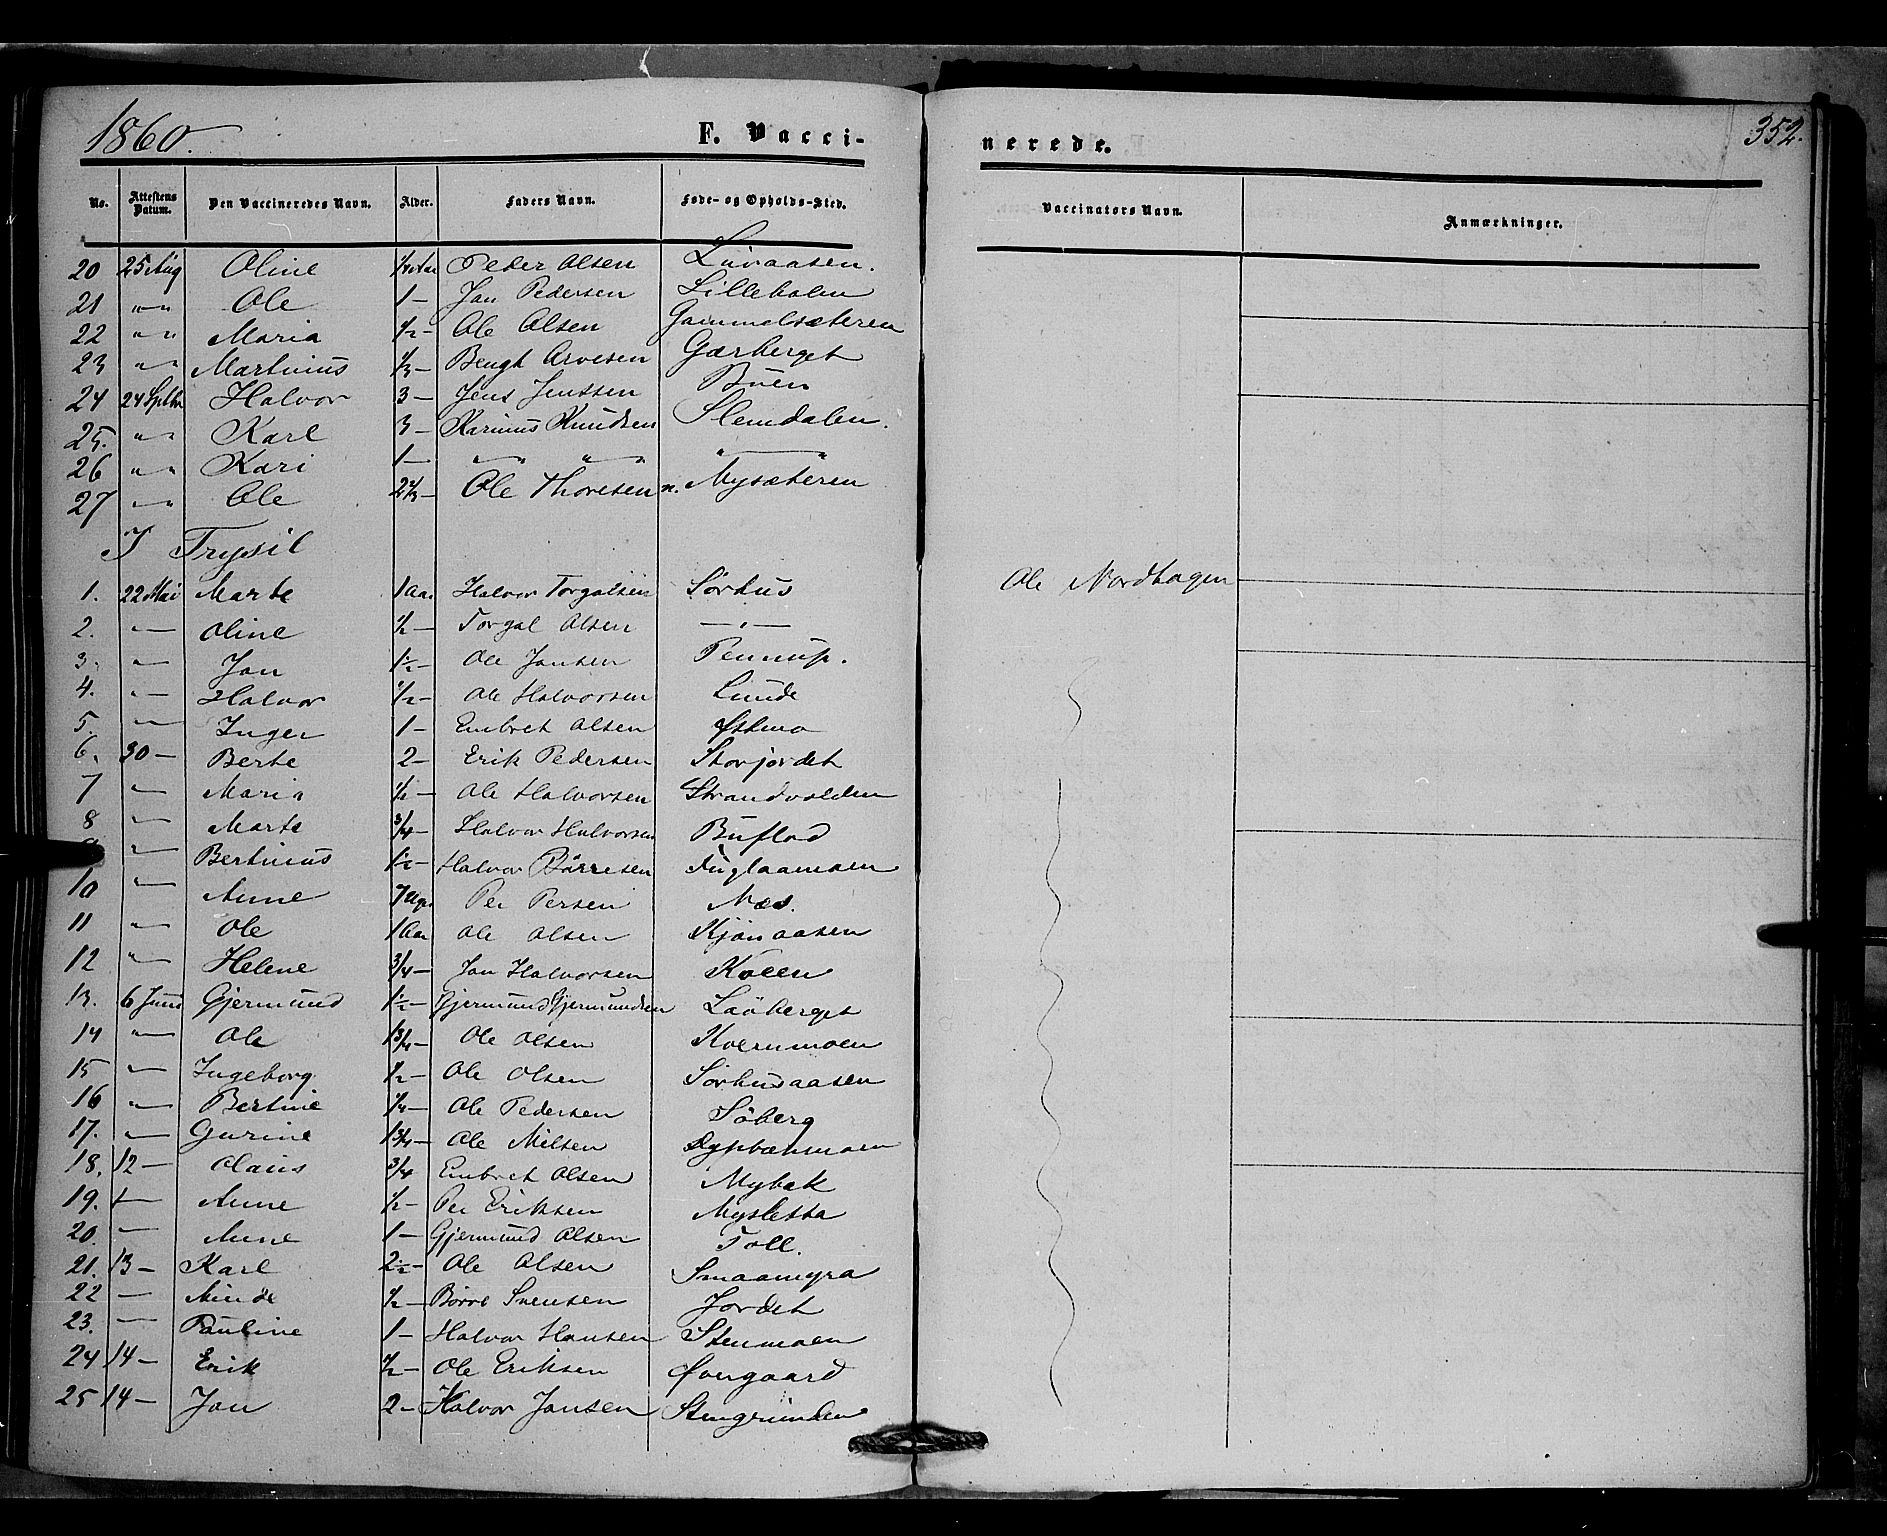 1860. F. Vacci- nerede. 352.
No. Attestens Datum. Den Vaccineredes Navn. Alder. Faders Navn. Føde- og Opholds-Sted. Vaccinators Navn. Anmærkninger.
20 25 Aug Oline Peder Olsen
21 " " Ole 1 - Jon Pedersen Lilleholen
22 " " Maria 1/2 - Ole Olsen Gammelsæteren
23 " " Martinius 1/3 - Bengt Arvesen Gærberget
24 24 Sptbr Halvor 3 - Jens Jenssen Buen
25. " " Karl 3 - Karinus Knudsen Slemdalen.
26 " " Kari 1 - " " "
27 " " Ole Ole Thoresen n. Mysæteren
I Trysil
1. 22 Mai Marte 1 Aar Halvor Torgalsen Sörhus Ole Nordhagen
2. " Oline 1/2 - Torgal Olsen — " —
3. " Jon 1 1/2 - Ole Jonsen Pennup.
4. " Halvor 1/2 - Ole Halvorsen Lunde
5. " Inger 1 - Embret Olsen Østmo
6. 30 - Berte 2 - Erik Pedersen Storjordet
7 " Maria 1/2 - Ole Halvorsen Strandvolden
8 " Marte 3/4 - Halvor Halvorsen Buflod
" Bertinius 1 1/2 - Halvor Börresen Fuglaamoen
10 " Anne 7 Uger Per Persen Næs.
11 " Ole 1 Aar Ole Olsen Kjönaasen
12 " Helene 3/4 - Jon Halvorsen
13. 6 Juni Gjermund 1 1/2 - Gjermund Gjermundsen Laaberget
14 " Ole 1 3/4 - Ole Olsen Kvernmoen
15 " Ingeborg 1/2 - Ole Olsen Sörhusaasen
16 " Bertine 1/4 - Ole Pedersen Söberg
17. " Gurine 1 3/4 - Ole Nilsen Dypbækmoen
18. 12 - Olaus 3/4 Embret Olsen Mybak
19. " Anne 1/2 - Per Eriksen Mysletta
20. " Anne 1 - Gjermund Olsen Toll.
21. 13 - Karl 2 1/2 - Ole Olsen Smaamyra
22 - 1/2 - Börre Svensen Jordet
23. " Pauline 1 - Halvor Hansen Stenmoen
24 14 - Erik 1/2 - Ole Eriksen Øvergaard
25 14 - Jon 2 - Halvor Jonsen Stengrunden